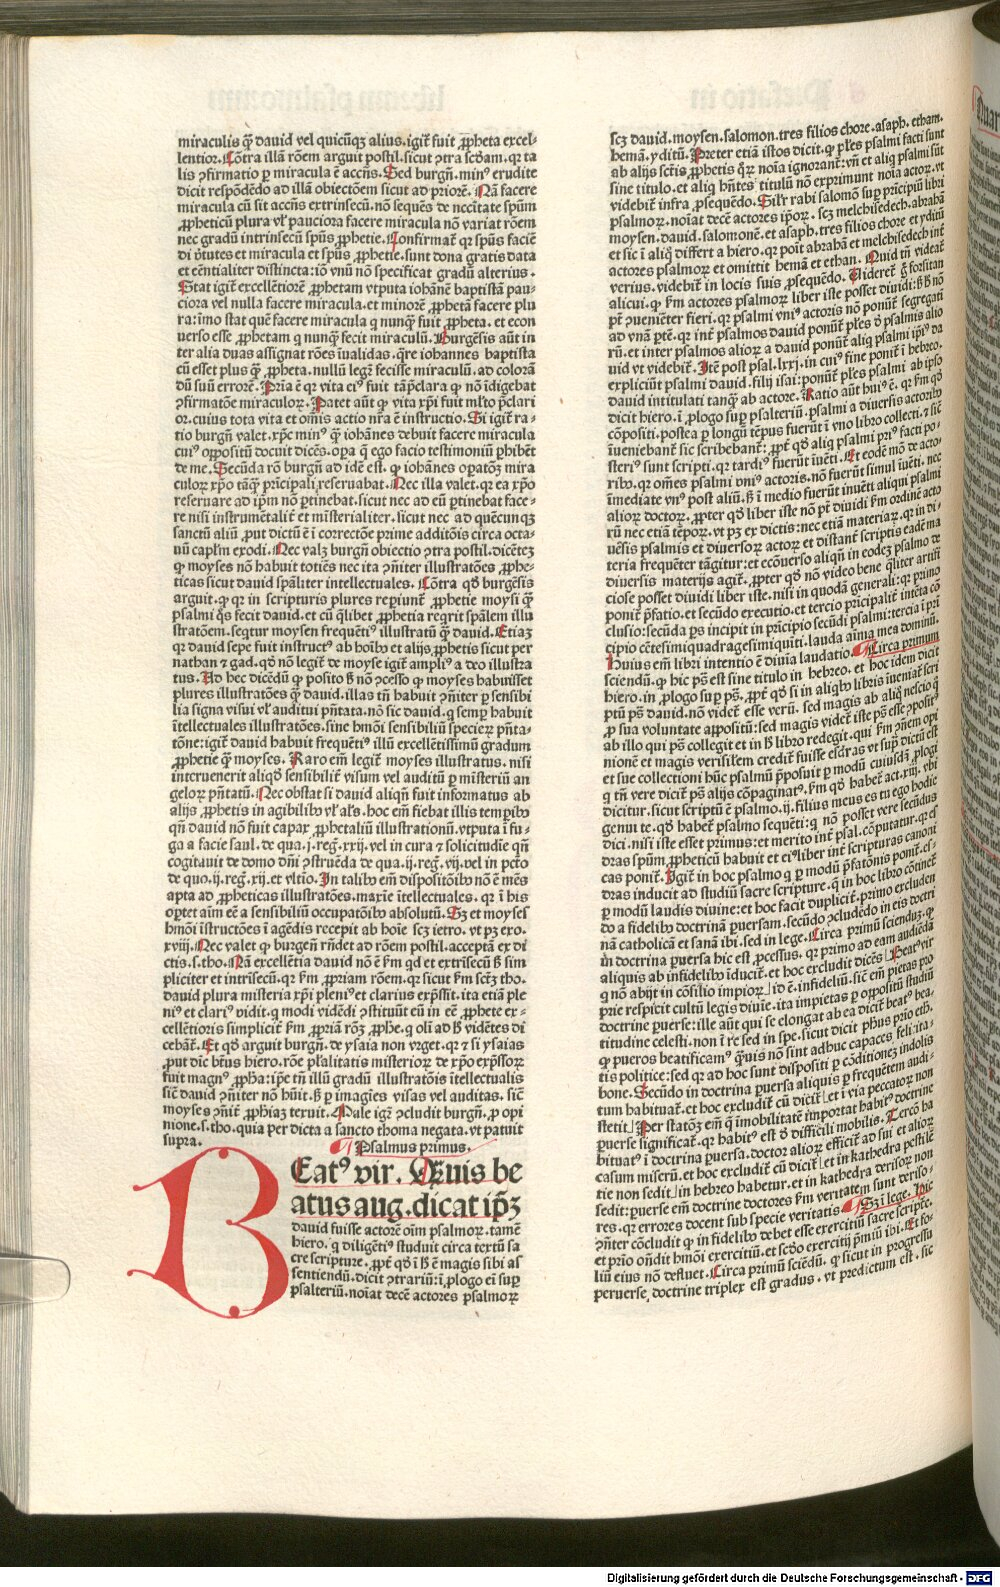 miraculis q̄ꝫ david vel quicūqꝫ alius. igit̄ fuit ꝓpheta excel-
lentior. Cōtra illā rōem arguit postil. sicut ꝯtra scd̄am. qꝛ ta
lis ꝯfirmatio ꝑ miracula ē accn̄s. Sed burgn̄. minꝰ erudite
dicit respōdēdo ad illā obiectōem sicut ad priorē. Nā facere
miracula cū sit accn̄s extrinsecū. nō sequēs de necc̄itate spūm
ꝓpheticū plura vl̓ pauciora facere miracula nō variat rōem
nec gradū intrinsecū spūs ꝓphetie. Confirmat᷑ qꝛ spūs faciē
di v̓tutes et miracula et spūs ꝓphetie. sunt dona gratis data
et eēntialiter distincta: iō vnū nō specificat gradū alterius.
Stat igit̄ excellētiorē ꝓphetam vtputa iohānē baptistā pau-
ciora vel nulla facere miracula. et minorē ꝓphetā facere plu
ra: imo stat quē facere miracula q nunq̄ fuit ꝓpheta. et econ
uerso esse ꝓphetam q nunq̄ fecit miraculū. Burgēsis aūt in
ter alia duas assignat rōes īualidas. q̄re iohannes baptista
cū esset plus q̄ ꝓpheta. nullū legit᷑ fecisse miraculū. ad colorā
dū suū errorē. Pria ē qꝛ vita eiꝰ fuit tā p̄clara ꝙ nō īdigebat
ꝯfirmatōe miraculoꝝ. Patet aūt ꝙ vita xp̄i fuit ml̓to p̄clari
or. cuius tota vita et om̄is actio nr̄a ē instructio. Si igit̄ ra-
tio burgn̄. valet. xp̄c minꝰ q̄ iohānes debuit facere miracula
cuiꝰ oppositū docuit dicēs. oꝑa q̄ ego facio testimoniū ꝑhibēt
de me. Secūda rō burgn̄. ad idē est. ꝙ iohānes oꝑatōꝫ mira
culoꝝ xp̄o tāq̄ prīcipali reseruabat. Nec illa valet. qꝛ ea xp̄o
reseruare ad ip̄m nō ꝑtinebat. sicut nec ad eū ꝑtinebat face-
re nisi instrumētalit̄ et mīsterialiter. sicut nec ad quēcunqꝫ
sanctū aliū ꝓut dictū ē ī correctōe prime additōis circa octa-
uū capl̓m exodi. Nec valꝫ burgn̄. obiectio ꝯtra postil. dicētez
ꝙ moyses nō habuit totiēs nec ita ꝯn̄iter illustratōes ꝓphe-
ticas sicut david spāliter intellectuales. Cōtra qd̓ burgēsis
arguit. ꝙ qꝛ in scripturis plures reꝑiunt᷑ ꝓphetie moysi q̄
psalmi q̄s fecit david. et cū q̄libet ꝓphetia reqrit spālem illu
stratōem. seqtur moysen frequētiꝰ illustratū q̄ david. Etiaꝫ
qꝛ david sepe fuit instructꝰ ab hoībꝰ et alijs ꝓphetis sicut per
nathan ⁊ gad. qd̓ nō legit᷑ de moyse igit̄ ampliꝰ a deo illustra
tus. Ad hec dicēdū ꝙ posito ꝫ nō ꝯcesso ꝙ moyses habuisset
plures illustratōes q̄ david. illas tn̄ habuit ꝯn̄iter ꝑ sensibi
lia signa visui vl̓ auditui pn̄tata. nō sic david. q semꝑ habuit
ītellectuales illustratōes. sine hmōi sensibiliū specieꝝ pn̄ta-
tōne: igit̄ david habuit frequētiꝰ illū excellētissimū gradum
ꝓphetie q̄ moyses. Raro em̄ legit᷑ moyses illustratus. nisi
interuenerit aliqd̓ sensibile visum vel auditū ꝑ mīsteriū an
geloꝝ pn̄tatū. Nec obstat si david aliqn̄ fuit informatus ab
alijs ꝓphetis in agibilibꝰ vl̓ al̓s. hoc em̄ fiebat illis tempibꝰ
qn̄ david nō fuit capax ꝓphetaliū illustrationū. vtputa ī fu-
ga a facie saul. de qua. j. reg̓. xxij. vel in cura ⁊ solicitudie qn̄
cogitauit de domo dn̄i ꝯstruēda de qua. ij. reg̓. vij. vel in pctō
de quo. ij. reg̓. xij. et vltīo. In talibꝰ em̄ dispositōibꝰ nō ē mēs
apta ad ꝓpheticas illustratōes. maxīe ītellectuales. qꝛ ī his
oꝑtet aīm eē a sensibiliū occupatōibꝰ absolutū. Sꝫ et moyses
hmōi īstructōes ī agēdis recepit ab hoīe scꝫ ietro. vt pꝫ exo.
xviij. Nec valet ꝙ burgen̄. rn̄det ad rōem postil. acceptā ex di
ctis. s. tho. Nā excellētia david nō ē ẜm qd et extrīsecū ꝫ sim
pliciter et intrīsecū. qꝛ ẜm ꝓpriam rōem. qꝛ sicut ẜm sctꝫ tho.
david plura misteria xp̄i pleniꝰ et clarius exp̄ssit. ita etiā ple
niꝰ et clariꝰ vidit. q modi vidēdi ꝯstituūt eū in eē ꝓphete ex-
cellētioris simplicit̄ ẜm ꝓpriā rōꝫ ꝓphe. q oli ad ꝫ vidētes di
cebāt᷑. Et qd̓ arguit burgn̄. de ysaia non vrget. qꝛ ⁊ si ysaias
ꝓut dic̄ bt̄us hiero. rōe pl̓alitatis misterioꝝ de xp̄o exp̄ssoꝝ
fuit magnꝰ ꝓpha: ip̄e tn̄ illū gradū illustratōis ītellectualis
sic̄ david ꝯn̄iter nō h̄uit. ꝫ ꝑ imagīes visas vel auditas. sic̄
moyses ꝯn̄it̄ ꝓphiaꝫ texuit. Male igit᷑ ꝯcludit burgn̄. ꝓ opi
nione. s. tho. quia per dicta a sancto thoma negata. vt patuit
supra.
¶ Psalmus primus.
BEatꝰ vir. Quis be
atus aug. dicat ip̄ꝫ
david fuisse actorē oīm psalmoꝝ. tamē
hiero. q diligētiꝰ studuit circa textū sa
cre scripture. ꝓpt̄ qd̓ ī ꝫ ē magis sibi as
sentiendū. dicit ꝯtrariū: ī ꝓlogo eī suꝑ
psalteriū. noīat decē actores psalmoꝝ
scꝫ david. moysen. salomon. tres filios chore. asaph. etham.
hemā. ⁊ yditū. Preter etiā istos dicit. ꝙ pl̓es psalmi facti sunt
ab alijs sctis ꝓphetis qꝝ noīa ignorant᷑: vn̄ et aliq psalmi sūt
sine titulo. et aliq hn̄tes titulū nō exprimunt noīa actoꝝ. vt
videbit᷑ infra ꝓsequēdo. Silr̄ rabi salomō suꝑ prīcipiū libri
psalmoꝝ. noīat decē actores ip̄oꝝ. scꝫ melchisedech. abrahā
moysen. david. salomonē. et asaph. tres filios chore et yditū
et sic ī aliq differt a hiero. qꝛ poīt abrahā et melchisedech int̄
actores psalmoꝝ et omittit hemā et ethan. Quid tn̄ videat᷑
verius. videbit᷑ in locis suis ꝓsequēdo. Videret᷑ q̄ forsitan
alicui. ꝙ ẜm actores psalmoꝝ liber iste posset diuidi: ꝫ ꝫ nō
pt̄ ꝯueniēter fieri. qꝛ psalmi vniꝰ actoris nō ponūt᷑ segregati
ad vnā ꝑtē. qꝛ int̄ psalmos david ponūt᷑ pl̓es d̓ psalmis alio
rū. et inter psalmos alioꝝ a david ponūt᷑ aliq psalmi ip̄iꝰ da
uid vt videbit᷑. Itē post psal. lxxj. in cuiꝰ fine ponit᷑ ī hebreo.
expliciūt psalmi david. filij isai: ponūt᷑ pl̓es psalmi ab ipso
david intitulati tanq̄ ab actore. Ratio aūt huiꝰ ē. qꝛ ẜm qd̓
dicit hiero. ī ꝓlogo suꝑ psalteriū. psalmi a diuersis actoribꝰ
cōpositi. postea ꝑ longū tēpus fuerūt ī vno libro collecti. ⁊ sic̄
īueniebant᷑ sic scribebant᷑: ꝓpt̄ qd̓ aliq psalmi priꝰ facti po-
steriꝰ sunt scripti. qꝛ tardiꝰ fuerūt īuēti. Et eodē mō de acto-
ribꝰ. qꝛ om̄es psalmi vniꝰ actoris. nō fuerūt simul īuēti. nec
īmediate vnꝰ post aliū. ꝫ ī medio fuerūt inuēti aliqui psalmi
alioꝝ doctoꝝ. ꝓpter qd̓ liber iste nō pt̄ diuidi ẜm ordinē acto
rū nec etiā tēpoꝝ. vt pꝫ ex dictis: nec etiā materiaꝝ. qꝛ in di-
uersis psalmis et diuersoꝝ actoꝝ et distant᷑ scriptis eadē ma
teria frequēter tāgitur: et ecōuerso aliqn̄ in eodeꝫ psalmo de
diuersis materijs agit᷑. ꝓpter qd̓ nō video bene q̄liter artifi
ciose posset diuidi liber iste. nisi in quodā generali: qꝛ primo
ponit᷑ p̄fatio. et secūdo executio. et tercio prīcipalit̄ intēta cō
clusio: secūda ps incipit in prīcipio secūdi psalmi: tercia ī prī
cipio cētesimiquadragesimiquīti. lauda aīma mea dominū.
Huius em̄ libri intentio ē diuīa laudatio. ¶ Circa primum
sciendū. ꝙ hic ps̄ est sine titulo in hebreo. et hoc idem dicit
hiero. in ꝓlogo suꝑ ps̄. ꝓpt̄ qd̓ si in aliqbꝰ libris īueniat᷑ scri
ptū ps̄ david. nō videt᷑ esse verū. sed magis ab aliq̄ nescio q̄
ꝓ sua voluntate appositū: sed magis videt᷑ iste ps̄ esse ꝯpositꝰ
ab illo qui ps̄ collegit et in ꝫ libro redegit. qui ẜm ꝯn̄em opi
nionē et magis verisilem credit᷑ fuisse esdras vt supͣ dictū est
et sue collectioni hūc psalmū p̄posuit ꝑ modū cuiusdā ꝓlogi
q tn̄ vere dicit᷑ ps̄ alijs cōpaginatꝰ. ẜm qd̓ habet᷑ act. xiij. vbi
dicitur. sicut scriptū ē psalmo. ij. filius meus es tu ego hodie
genui te. qd̓ habet᷑ psalmo sequēti: q nō posset vere secūdus
dici. nisi iste esset primus: et merito int̄ psal. cōputatur. qꝛ es
dras spūm ꝓpheticū habuit et eiꝰ liber int̄ scripturas canoni
cas ponit᷑. Igit̄ in hoc psalmo q ꝑ modū p̄fatōnis ponit᷑. es-
dras inducit ad studiū sacre scripture. q̄ in hoc libro cōtinet᷑
ꝑ modū laudis diuine: et hoc facit duplicit̄. primo excluden
do a fidelibꝰ doctrinā ꝑuersam. secūdo ꝯcludēdo in eis doctri
nā catholicā et sanā ibi. sed in lege. Circa primū sciendū. ꝙ
in doctrina ꝑuersa hic est ꝓcessus. qꝛ primo ad eam audiēdā
aliquis ab infidelibꝰ īducit᷑. et hoc excludit dicēs. Beatꝰ vir
q nō abijt in cōsilio impioꝝ id ē. infideliū. sic̄ em̄ pietas pro
prie respicit cultū legis diuīe. ita impietas ꝑ oppositū studiū
doctrine ꝑuerse: ille aūt qui se elongat ab ea dicit᷑ beatꝰ bea-
titudine celesti. non ī re sed in spe. sicut dicit phūs prīo eth.
ꝙ pueros beatificamꝰ q̄uis nō sint adhuc capaces felicita-
tis politice: sed qꝛ ad hoc sunt dispositi ꝑ cōditionez indolis
bone. Secūdo in doctrina ꝑuersa aliquis ꝑ frequētem audi-
tum habituat᷑. et hoc excludit᷑ cū dicit᷑ et ī via peccatoꝝ non
stetit. Per statōꝫ em̄ q̄ imobilitatē importat habitꝰ doctrine
ꝑuerse significat᷑. qꝛ habitꝰ est d̓ difficili mobilis. Tercō ha
bituatꝰ ī doctrina ꝑuersa. doctor alioꝝ efficit᷑ ad sui et alioꝝ
casum miserū. et hoc excludit᷑ cū dicit᷑ et in kathedra pestilē
tie non sedit in hebreo habetur. et in kathedra derisoꝝ non
sedit: ꝑuerse em̄ doctrine doctores ẜm veritatem sunt deriso-
res. qꝛ errores docent sub specie veritatis. ¶ Sꝫ ī lege. Hic
ꝯn̄ter cōcludit ꝙ in fidelibꝰ debet esse exercitiū sacre scripte.
et prīo ondit᷑ hmōi exercitiū. et scd̓o exercitij p̄miū ibi. Et fo-
liū eius nō defluet. Circa primū sciēdū. ꝙ sicut in progressu
peruerse doctrine triplex est gradus. vt predictum est. sic
Digitalisierung gefördert durch die Deutsche Forschungsgemeinschaft - DFG